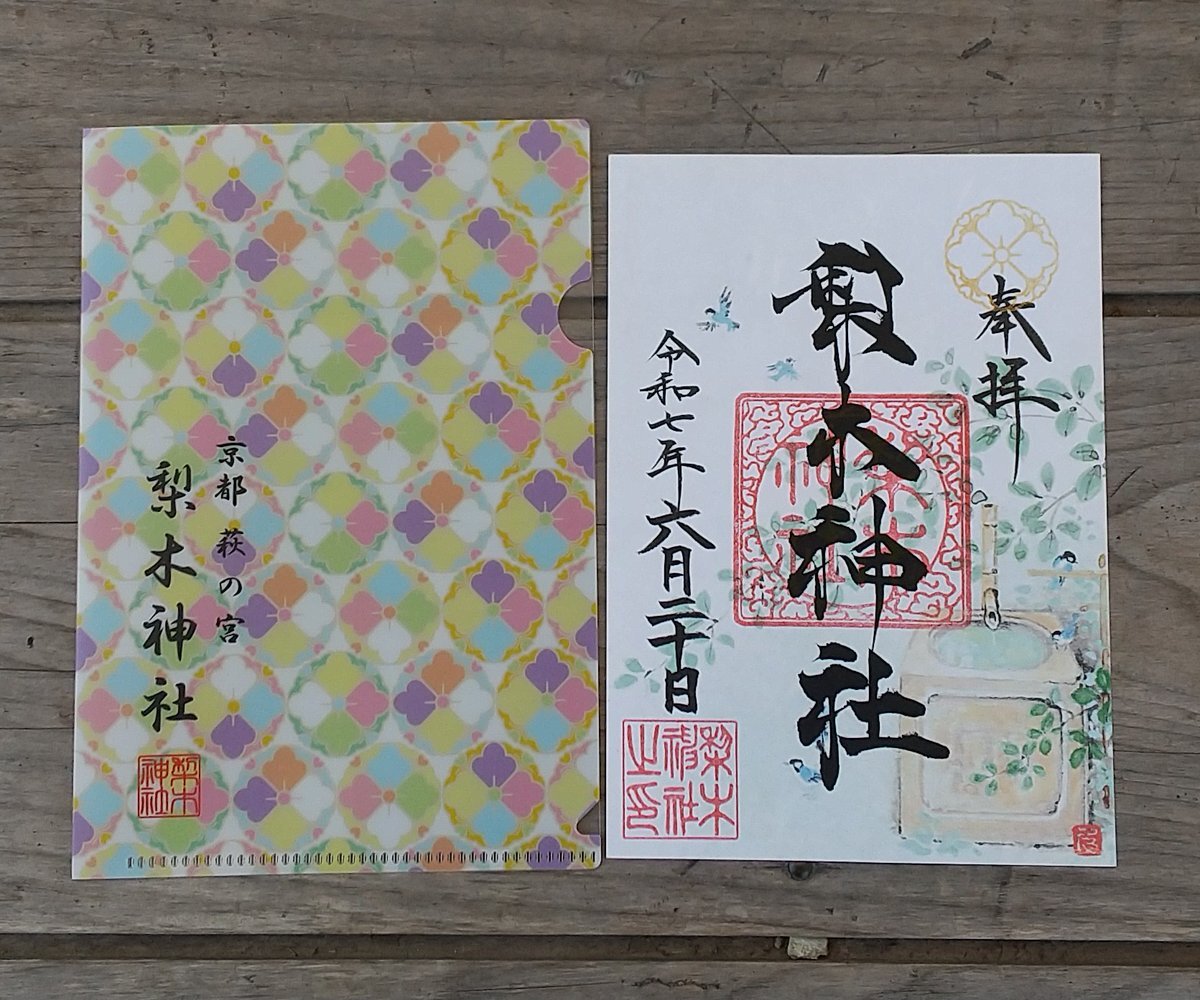 京都 萩の宮
梨木神社
梨木
神社
奉拝
梨木神社
令和七年六月二十日
梨木
神社
之印